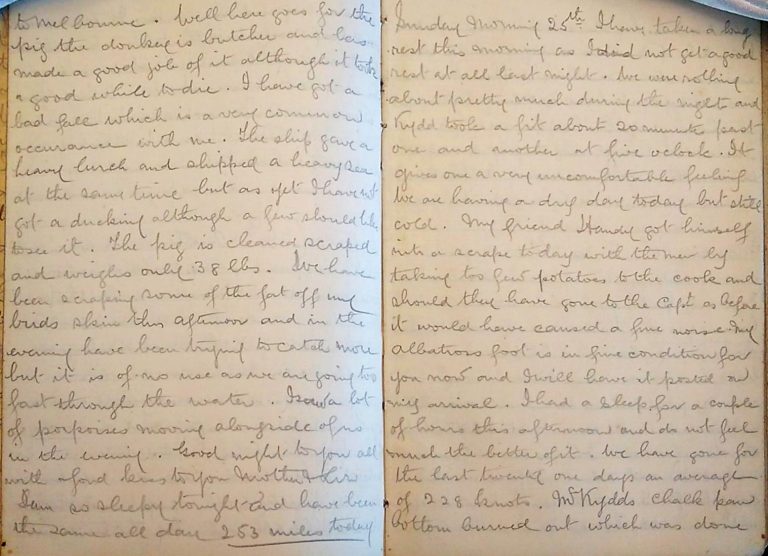 to Melbourne. Well here goes for the
pig the donkey is butcher and has
made a good job of it although it took
a good while to die. I have got a
bad fall which is a very common
occurance with me. The ship gave a
heavy lurch and shipped a heavy sea
at the same time but as yet I have not
got a ducking although a few should like
to see it. The pig is cleaned scraped
and weighs only 38 lbs. We have
been scraping some of the fat off my
birds skin this afternoon and in the
evening have been trying to catch more
but it is of no use as we are going too
fast through the water. I saw a lot
of porpoises moving alongside of us
in the evening. Good night to you all
with fond kiss to you Mother &
I am so sleepy tonight and have been
the same all day 253 miles today
Sunday Morning 25th I have taken a long
rest this morning as I did not get a good
rest at all last night. We were rolling
about pretty much during the night and
Kydd took a fit about 20 minutes past
one and another at five oclock. It
gives one a very uncomfortable feeling
We are having a dry day today but still
cold. My friend Handy got himself
into a scrape today with the men by
taking too few potatoes to the cook and
should they have gone to the Capt as before
it would have caused a fine noise. My
Albatross foot is in fine condition for
you now and I will have it posted on
my arrival. I had a sleep for a couple
of hours this afternoon and do not feel
much the better of it. We have gone for
the last twenty one days an average
of 228 knots. Mr Kydds chalk
bottom burned out which was done